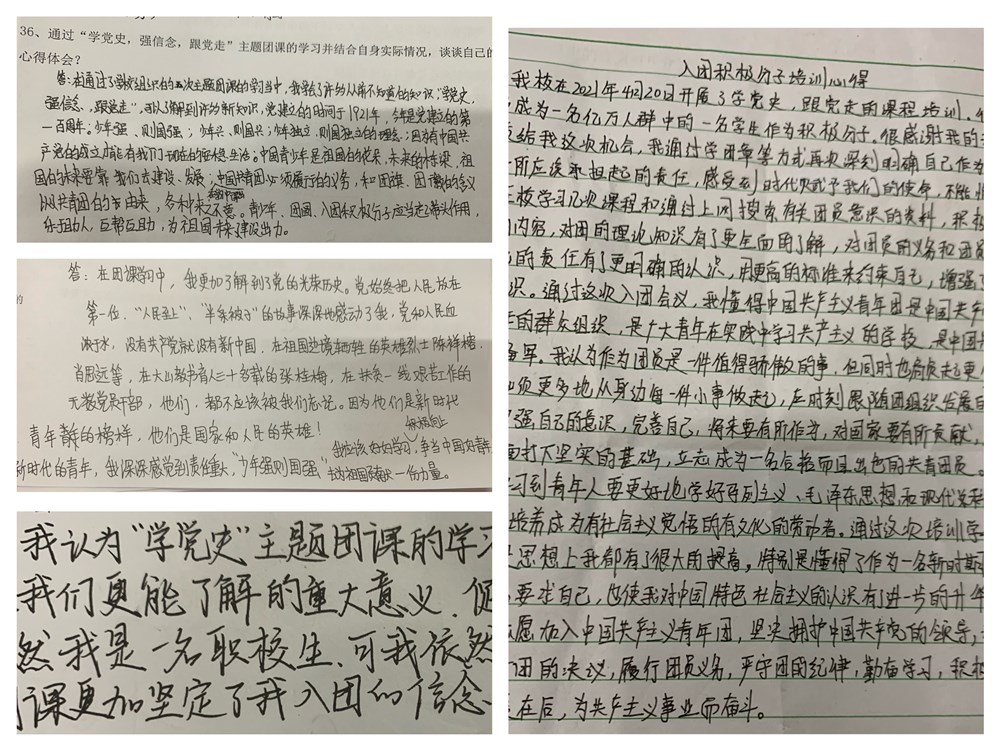 36、通过“学党史，强信念，跟党走”主题团课的学习并结合自身实际情况，谈谈自己的
心得体会？
答：在通过了学校组织的五次主题团课的学习当中，我学了许的人所不知道的知识，“学党史，
强信念，跟党走”，可以了解到许的新知识，党建立的时间于1921年，今年是党建立的第
一百周年。少年强、则国强；少年兴、则国兴；少年独立、则国独立的理念；因为有中国共
产党的成立才能有我们现在的生活。中国青少年是祖国的花朵，未来的栋梁，祖
国的未来要靠我们去建设、发展；中国共青团必须履行的义务，和团旗、团徽的含义
以及共青团的由来，各种来之不易。青少年、团团、入团积极分子应当起带头作用，
乐于助人，互帮互助，为祖国未来建设出力。
答：在团课学习中，我更加了解到了党的光荣历史。党始终把人民放在
第一位、“人民至上”、“半条被子”的故事深深地感动了我，党和人民血
浓于水，没有共产党就没有新中国。在祖国边境牺牲的英雄烈士陈祥榕、
肖思远等，在大山教书育人三十多载的张桂梅，在扶贫一线艰苦工作的
无数党员干部，他们，都不应该被我们忘记。因为他们是新时代
青年的榜样，他们是国家和人民的英雄！
新时代的青年，我深深感觉到责任重大，“少年强则国强”我应该好好学习，争当中国好青年
去为祖国贡献一份力量。
我认为“学党史”主题团课的学习
我们更能了解的重大意义、促
然我是一名职校生、可我依然
课更加坚定了我入团的信念
入团积极分子培训心得
我校在2021年4月20日开展了学党史，跟党走的课程培训。
成为一名亿万人群中的一名学生作为积极分子。很感谢我的
给我这次机会，我通过学团章等方式再次深刻明确自己作为
一所应该承担起的责任，感受到时代赋予我们的使命，不能
校学习几次课程和通过上网搜索有关团员意识的资料，积极
内容，对团的理论知识有了更全面的了解，对团员的义务和团员
的责任有了更明确的认识，用更高的标准来约束自己，增强了
识。通过这次入团会议，我懂得中国共产主义青年团是中国共产
的群众组织，是广大青年在实践中学习共产主义的学校，是中国共
备军。我认为作为团员是一件值得骄傲的事，但同时也肩负起更
须更多地从身边每一件小事做起，应时刻跟随团组织发展的
强自己的意识，完善自己，将来要有所作为，对国家要有所贡献，
面打下坚实的基础，立志成为一名合格而且出色的共青团员。
习到青年人要更好地学好马列主义、毛泽东思想和现代
培养成为有社会主义觉悟的有文化的劳动者。通过这次培训学
思想上我都有了很大的提高，特别是懂得了作为一名新时期
要求自己，也使我对中国特色社会主义的认识有了进一步的升华
愿加入中国共产主义青年团，坚决拥护中国共产党的领导，
团的决议，履行团员义务，严守团的纪律，勤奋学习，积极
在后，为共产主义事业而奋斗。